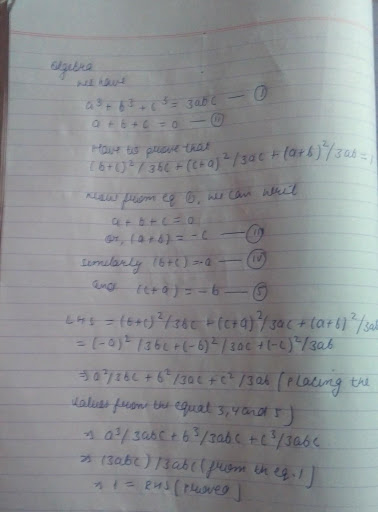 Algebra
we have
a³ + b³ + c³ = 3abc — (i)
a + b + c = 0 — (ii)
Have to prove that
(b+c)²/3bc + (c+a)²/3ac + (a+b)²/3ab = 1
Now from eq (ii), we can write
a + b + c = 0
or, (a+b) = -c — (iii)
similarly (b+c) = -a — (iv)
and (c+a) = -b — (5)
LHS = (b+c)²/3bc + (c+a)²/3ac + (a+b)²/3ab
= (-a)²/3bc + (-b)²/3ac + (-c)²/3ab
⇒ a²/3bc + b²/3ac + c²/3ab [placing the
values from the equat 3, 4 and 5]
⇒ a³/3abc + b³/3abc + c³/3abc
⇒ (3abc)/3abc (from the eq. 1)
⇒ 1 = RHS [proved]